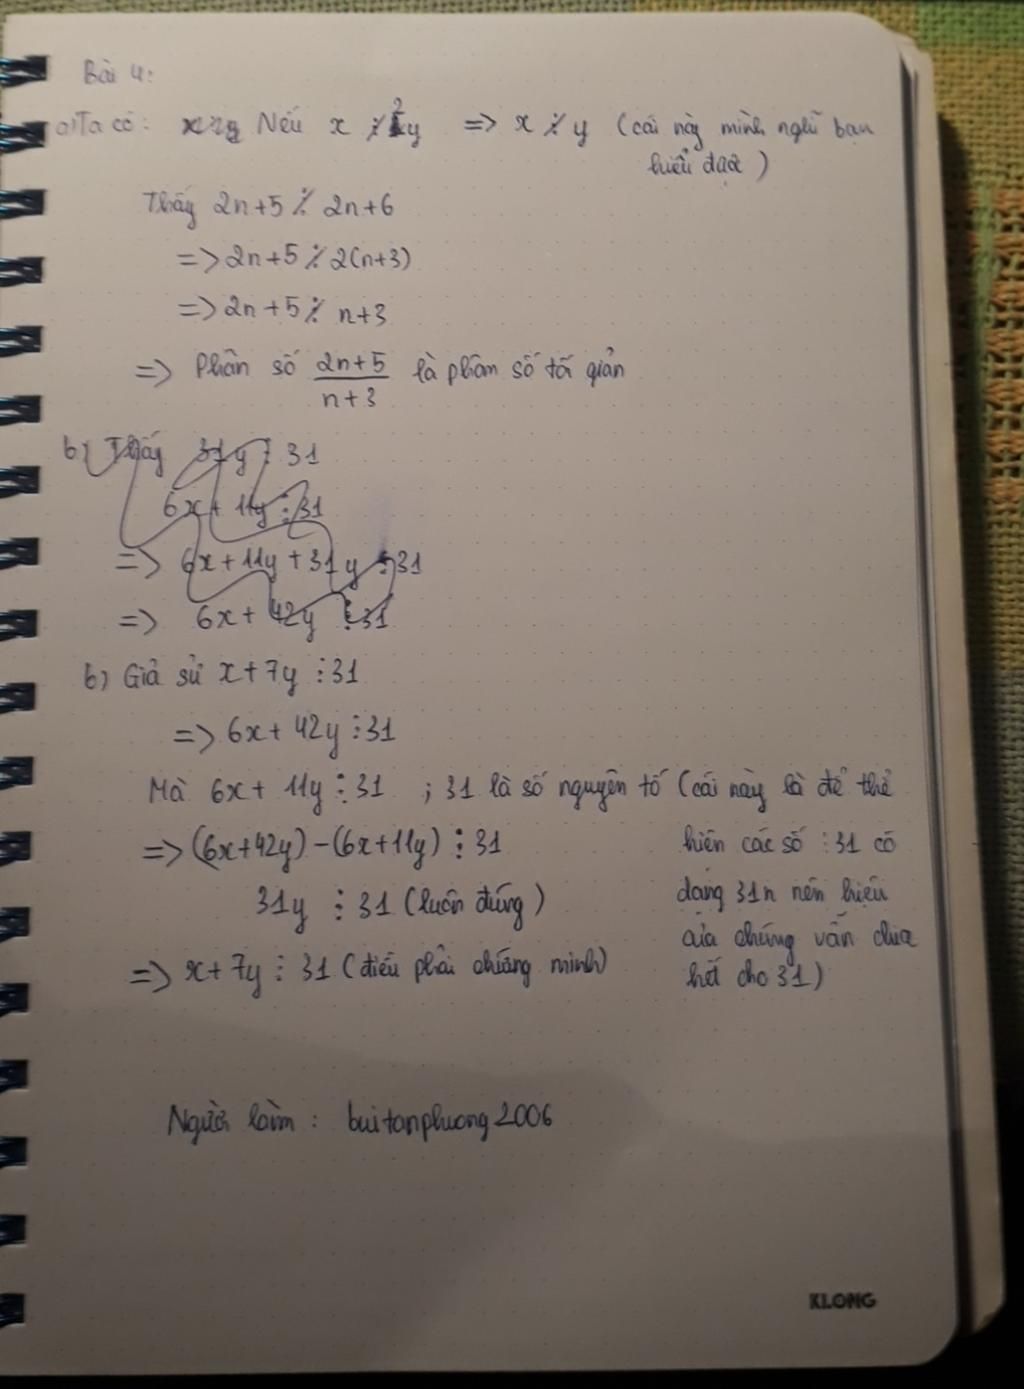 Bài 4:
a) Ta có: Nếu x ⋮̸ 2y => x ⋮̸ y (cái này mình nghĩ bạn
hiểu được)
Thấy 2n+5 ⋮̸ 2n+6
=> 2n+5 ⋮̸ 2(n+3)
=> 2n+5 ⋮̸ n+3
=> Phân số (2n+5)/(n+3) là phân số tối giản
b) Thấy 31y ⋮ 31
6x+ 11y ⋮ 31
=> 6x+11y+31y ⋮ 31
=> 6x+ 42y ⋮ 31
b) Giả sử x+7y ⋮ 31
=> 6x+ 42y ⋮ 31
Mà 6x+ 11y ⋮ 31 ; 31 là số nguyên tố (cái này là để thể
=> (6x+42y) - (6x+11y) ⋮ 31 hiện các số ⋮ 31 có
31y ⋮ 31 (luôn đúng) dạng 31n nên hiệu
của chúng vẫn chia
=> x+7y ⋮ 31 (điều phải chứng minh) hết cho 31)
Người làm: buitanphuong2006
KLONG